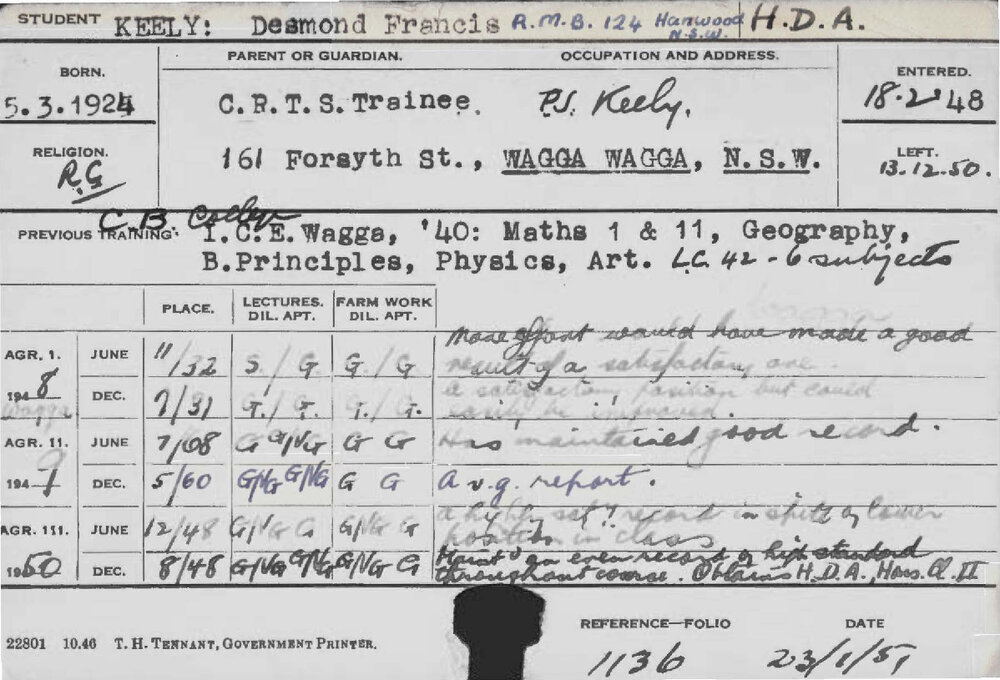 STUDENT KEELY: Desmond Francis R.M.B. 124 Hanwood N.S.W. H.D.A.
PARENT OR GUARDIAN. OCCUPATION AND ADDRESS.
BORN. ENTERED.
5.3.1924 C.R.T.S. Trainee. P.J. Keely. 18.2.48
RELIGION. 161 Forsyth St., WAGGA WAGGA, N.S.W. LEFT.
R.C 13.12.50.
C.B. College
PREVIOUS TRAINING. I.C.E. Wagga, '40: Maths 1 & 11, Geography,
B.Principles, Physics, Art. L.C. 42 - 6 subjects
PLACE. LECTURES. DIL. APT. FARM WORK DIL. APT.
AGR. 1. JUNE 11/32 S. / G. G. / G More effort would have made a good
result of a satisfactory one.
1948 DEC. 7/31 G. / G. G. / G. a satisfactory position but could
Wagga easily be improved.
AGR. 11. JUNE 7/08 G G/VG G G Has maintained good record.
1949 DEC. 5/60 G/VG G/VG G G A v.g. report.
AGR. 111. JUNE 12/48 G/VG G G/VG G a highly sat? record in spite of lower
position in class
1950 DEC. 8/48 G/VG G/VG G/VG G Maint'd an even record of high standard
throughout course. Obtains H.D.A., Hons. Cl. II
REFERENCE—FOLIO DATE
22801 10.46 T. H. TENNANT, GOVERNMENT PRINTER.
1136 23/1/51